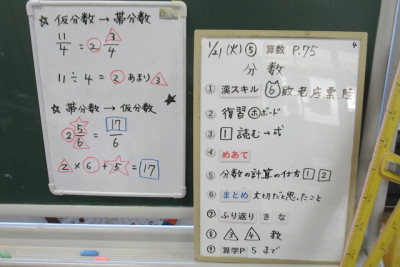 ☆仮分数→帯分数
11/4 = 2 3/4
11÷4=2あまり3
☆帯分数→仮分数
2 5/6 = 17/6
2×6+5=17
1/21(火)⑤算数 P.75
4
分数
①漢スキル 6 敗老店票陸
②復習ホボード
③1読む→式
④めあて
⑤分数の計算の仕方 1 2
⑥まとめ 大切だと思ったこと
⑦ふり返り きな
⑧3 4 教
⑨算学P 5まで